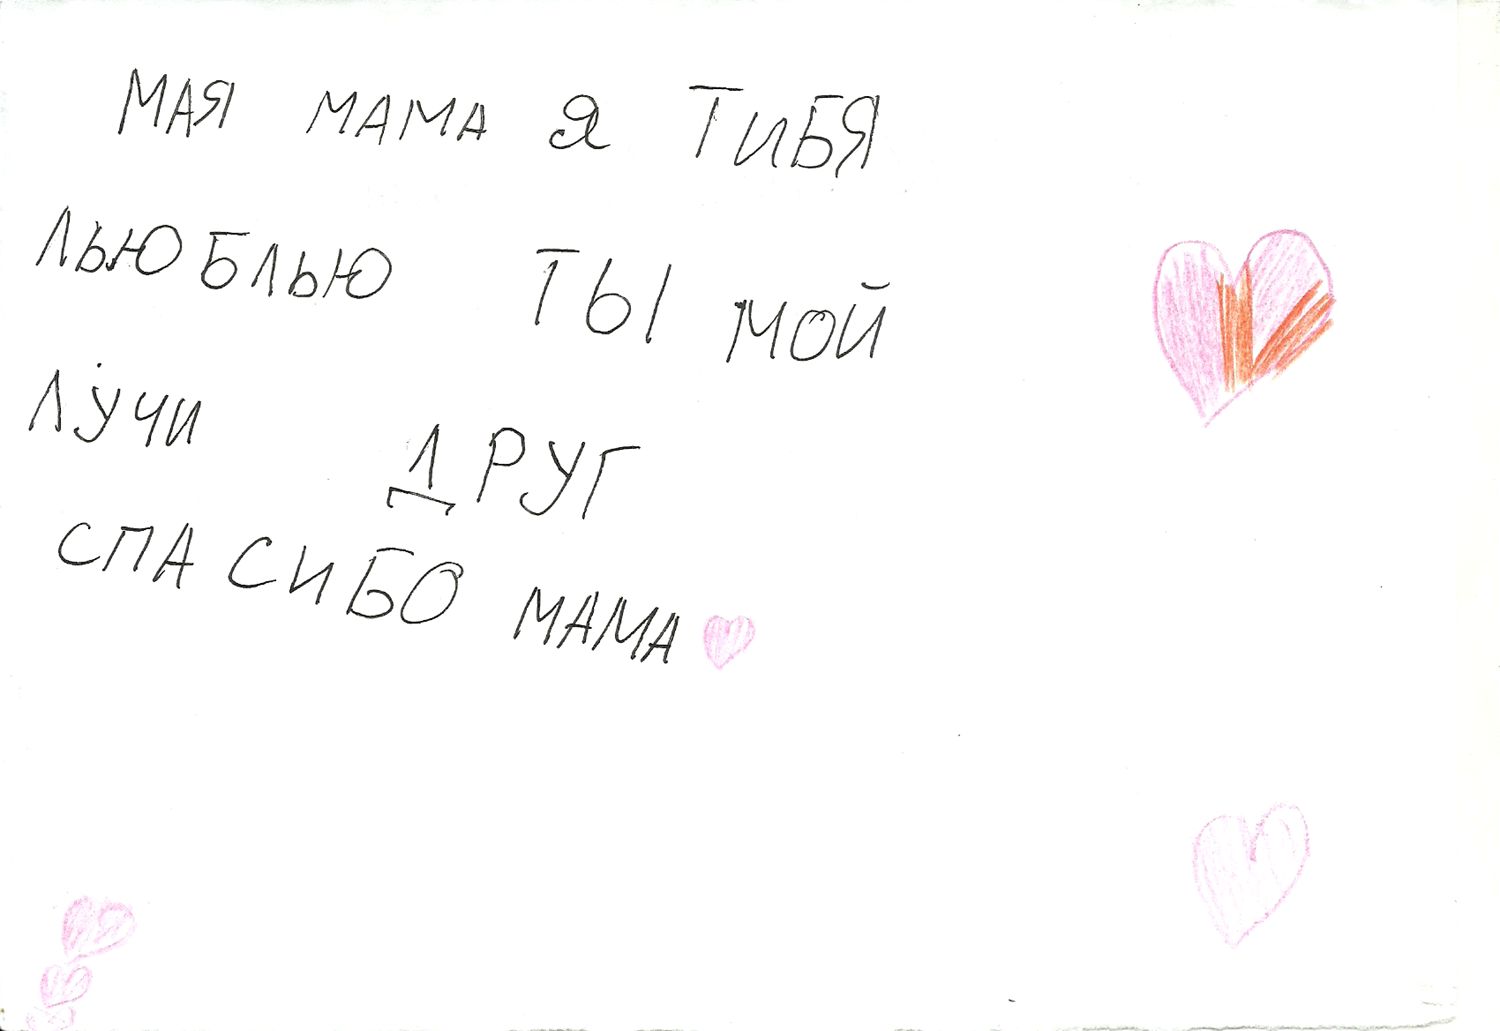 МАЯ МАМА Я ТИБЯ
ЛЬЮБЛЬЮ ТЫ МОЙ
ЛУЧИ ДРУГ
СПАСИБО МАМА